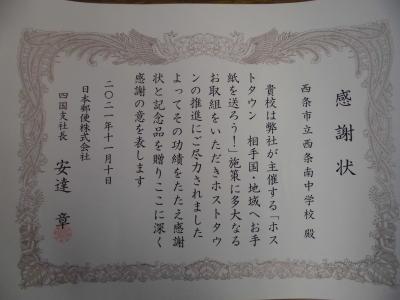 感謝状
西条市立西条南中学校 殿
貴校は弊社が主催する「ホス
トタウン 相手国・地域へお手
紙を送ろう！」施策に多大なる
お取組をいただきホストタウ
ンの推進にご尽力されました
よってその功績をたたえ感謝
状と記念品を贈りここに深く
感謝の意を表します
二〇二一年十一月十日
日本郵便株式会社
四国支社長 安達 章